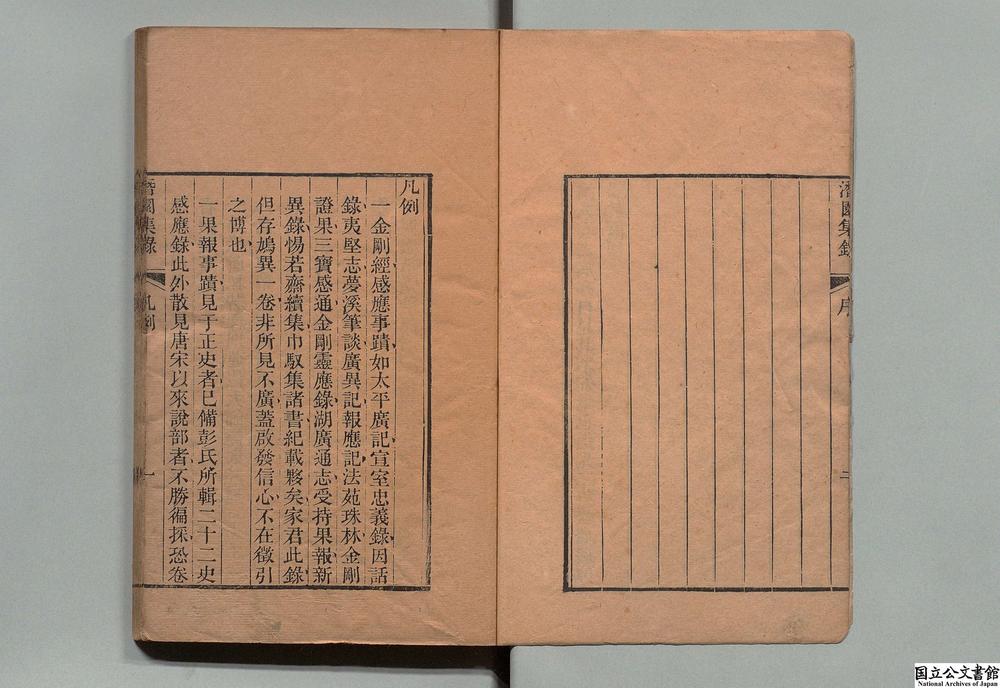 潛園集錄
序
二
凡例
一金剛經感應事蹟如太平廣記宣室忠義錄因話
錄夷堅志夢溪筆談廣異記報應記法苑珠林金剛
證果三寶感通金剛靈應錄湖廣通志受持果報新
異錄惕若齋續集巾馭集諸書紀載夥矣家君此錄
但存鳩異一卷非所見不廣蓋啟發信心不在徵引
之博也
一果報事蹟見于正史者已備彭氏所輯二十二史
感應錄此外散見唐宋以來說部者不勝徧採恐卷
潛園集錄
凡例
一
国立公文書館
National Archives of Japan